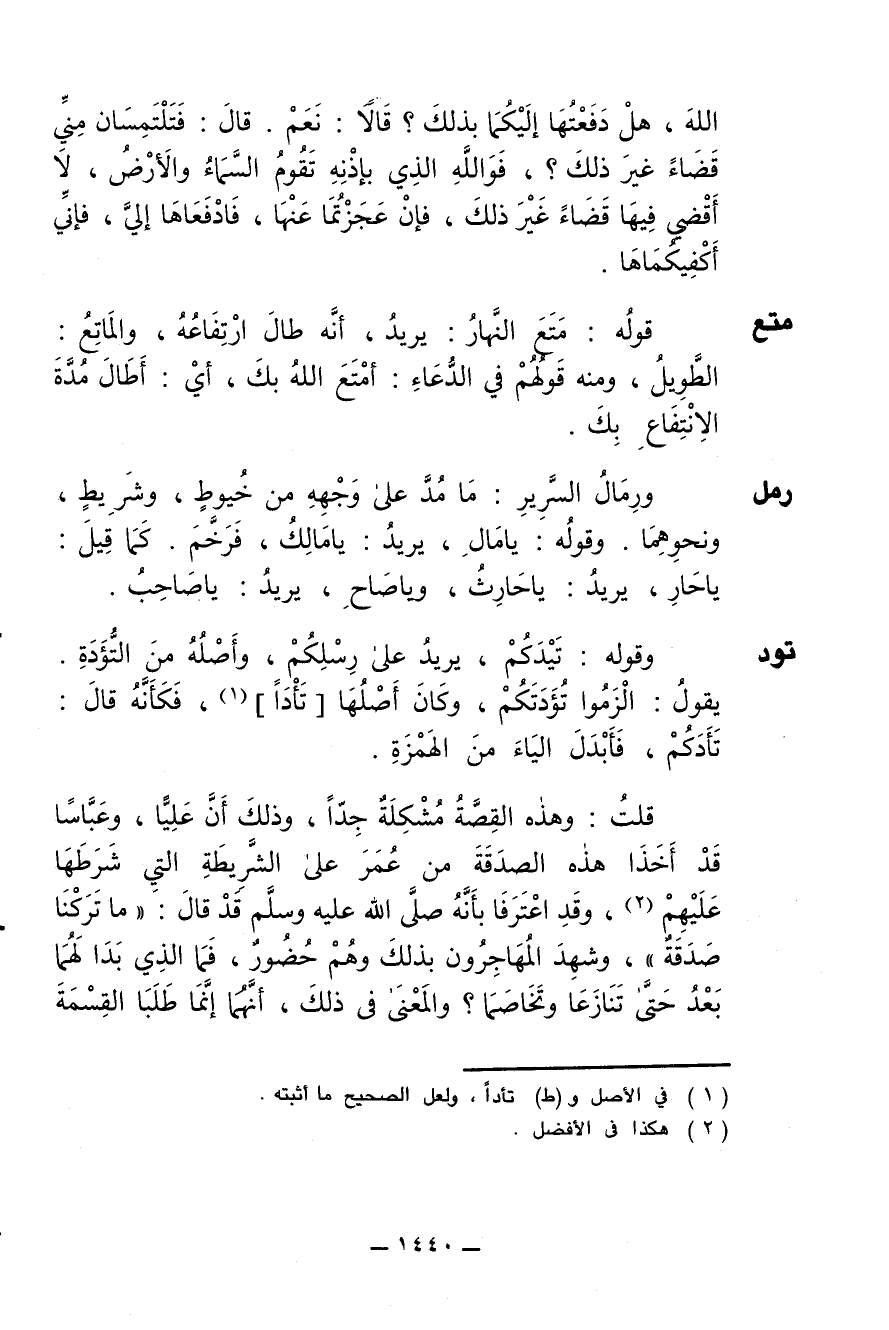 اللهَ ، هلْ دَفَعْتُهَا إِلَيْكُمَا بذلكَ ؟ قَالَا : نَعَمْ . قالَ : فَتَلْتَمِسَان مِنِّي
قَضَاءً غيرَ ذلكَ ؟ ، فَوَاللَّهِ الذي بإذْنِهِ تَقُومُ السَّمَاءُ والَأرْضُ ، لَا
أَقْضي فِيهَا قَضَاءً غَيْرَ ذلكَ ، فإنْ عَجَزْتُمَا عَنْهَا ، فَادْفَعَاهَا إليَّ ، فإنِّي
أَكْفِيكُمَاهَا .
متع قولُه : مَتَعَ النَّهارُ : يريدُ ، أنَّه طالَ ارْتِفَاعُهُ ، والمَاتِعُ :
الطَّوِيلُ ، ومنه قَولُهُمْ في الدُّعَاءِ : أمْتَعَ اللهُ بكَ ، أيْ : أَطَالَ مُدَّةَ
الاِنْتِفَاعِ بِكَ .
رمل ورِمَالُ السَّرِيرِ : مَا مُدَّ علىٰ وَجْهِهِ من خُيوطٍ ، وشَرِيطٍ ،
ونحوِهِمَا . وقولُه : يامَالِ ، يريدُ : يامَالِكُ ، فَرَخَّمَ . كَمَا قِيلَ :
ياحَارِ ، يريدُ : ياحَارِثُ ، وياصَاحِ ، يريدُ : ياصَاحِبُ .
تود وقوله : تَيْدَكُمْ ، يريدُ علىٰ رِسْلِكُمْ ، وأَصْلُهُ منَ التُّؤَدَةِ .
يقولُ : الْزَمُوا تُؤَدَتَكُمْ ، وكَانَ أَصْلُهَا [ تَأْدَاً ] (١) ، فَكَأَنَّهُ قالَ :
تَأَدَكُمْ ، فَأَبْدَلَ اليَاءَ منَ الهَمْزَةِ .
قلتُ : وهذٰه القِصَّةُ مُشْكِلَةٌ جِدّاً ، وذلكَ أَنَّ عَلِيًّا ، وعَبَّاسًا
قَدْ أَخَذَا هذٰه الصدَقَةَ من عُمَرَ علىٰ الشَّرِيطَةِ التي شَرَطَهَا
عَلَيْهِمْ (٢) ، وقَدِ اعْتَرَفَا بأَنَّهُ صلَّى الله عليه وسلَّم قَدْ قالَ : « ما تَرَكْنَا
صَدَقَةٌ » ، وشهِدَ المُهَاجِرُون بذلكَ وهُمْ حُضُورٌ ، فَمَا الذي بَدَا لَهُمَا
بَعْدُ حَتَّىٰ تَنَازَعَا وتَخَاصَمَا ؟ والمَعْنَىٰ في ذلكَ ، أنَّهُمَا إنَّمَا طَلَبَا القِسْمَةَ
( ١ ) في الأصل و (ط) تأداً ، ولعل الصحيح ما أثبته .
( ٢ ) هكذا في الأفضل .
– ١٤٤٠ –